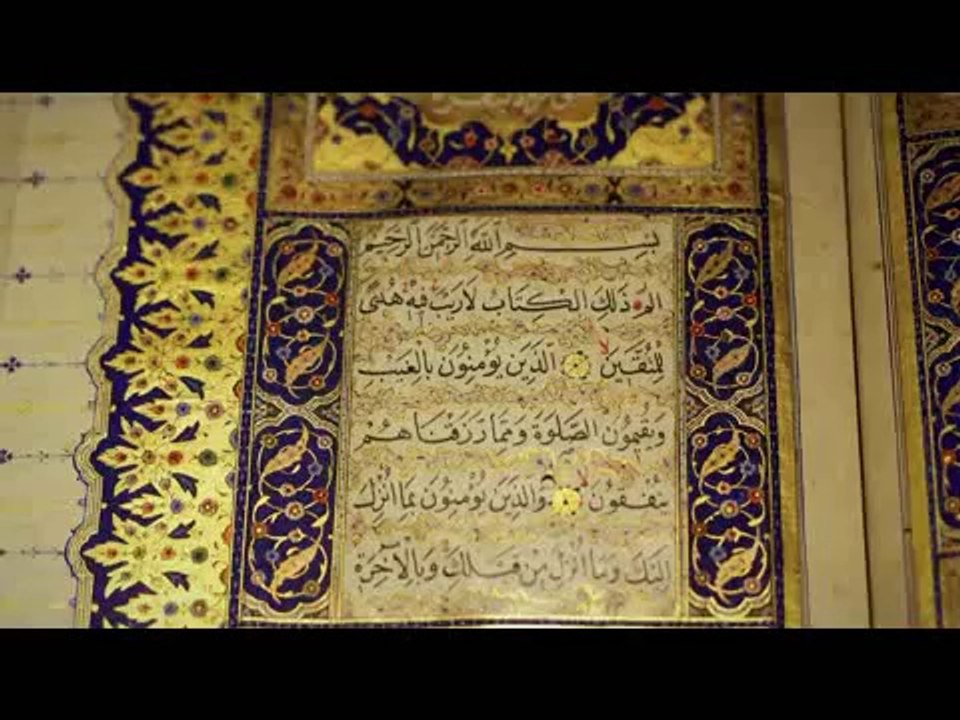 بِسْمِ اللَّهِ الرَّحْمَنِ الرَّحِيمِ
الم ذَلِكَ الْكِتَابُ لَا رَيْبَ فِيهِ هُدًى
لِلْمُتَّقِينَ الَّذِينَ يُؤْمِنُونَ بِالْغَيْبِ
وَيُقِيمُونَ الصَّلَوةَ وَمِمَّا رَزَقْنَاهُمْ
يُنْفِقُونَ وَالَّذِينَ يُؤْمِنُونَ بِمَا أُنْزِلَ
إِلَيْكَ وَمَا أُنْزِلَ مِنْ قَبْلِكَ وَبِالْآخِرَةِ